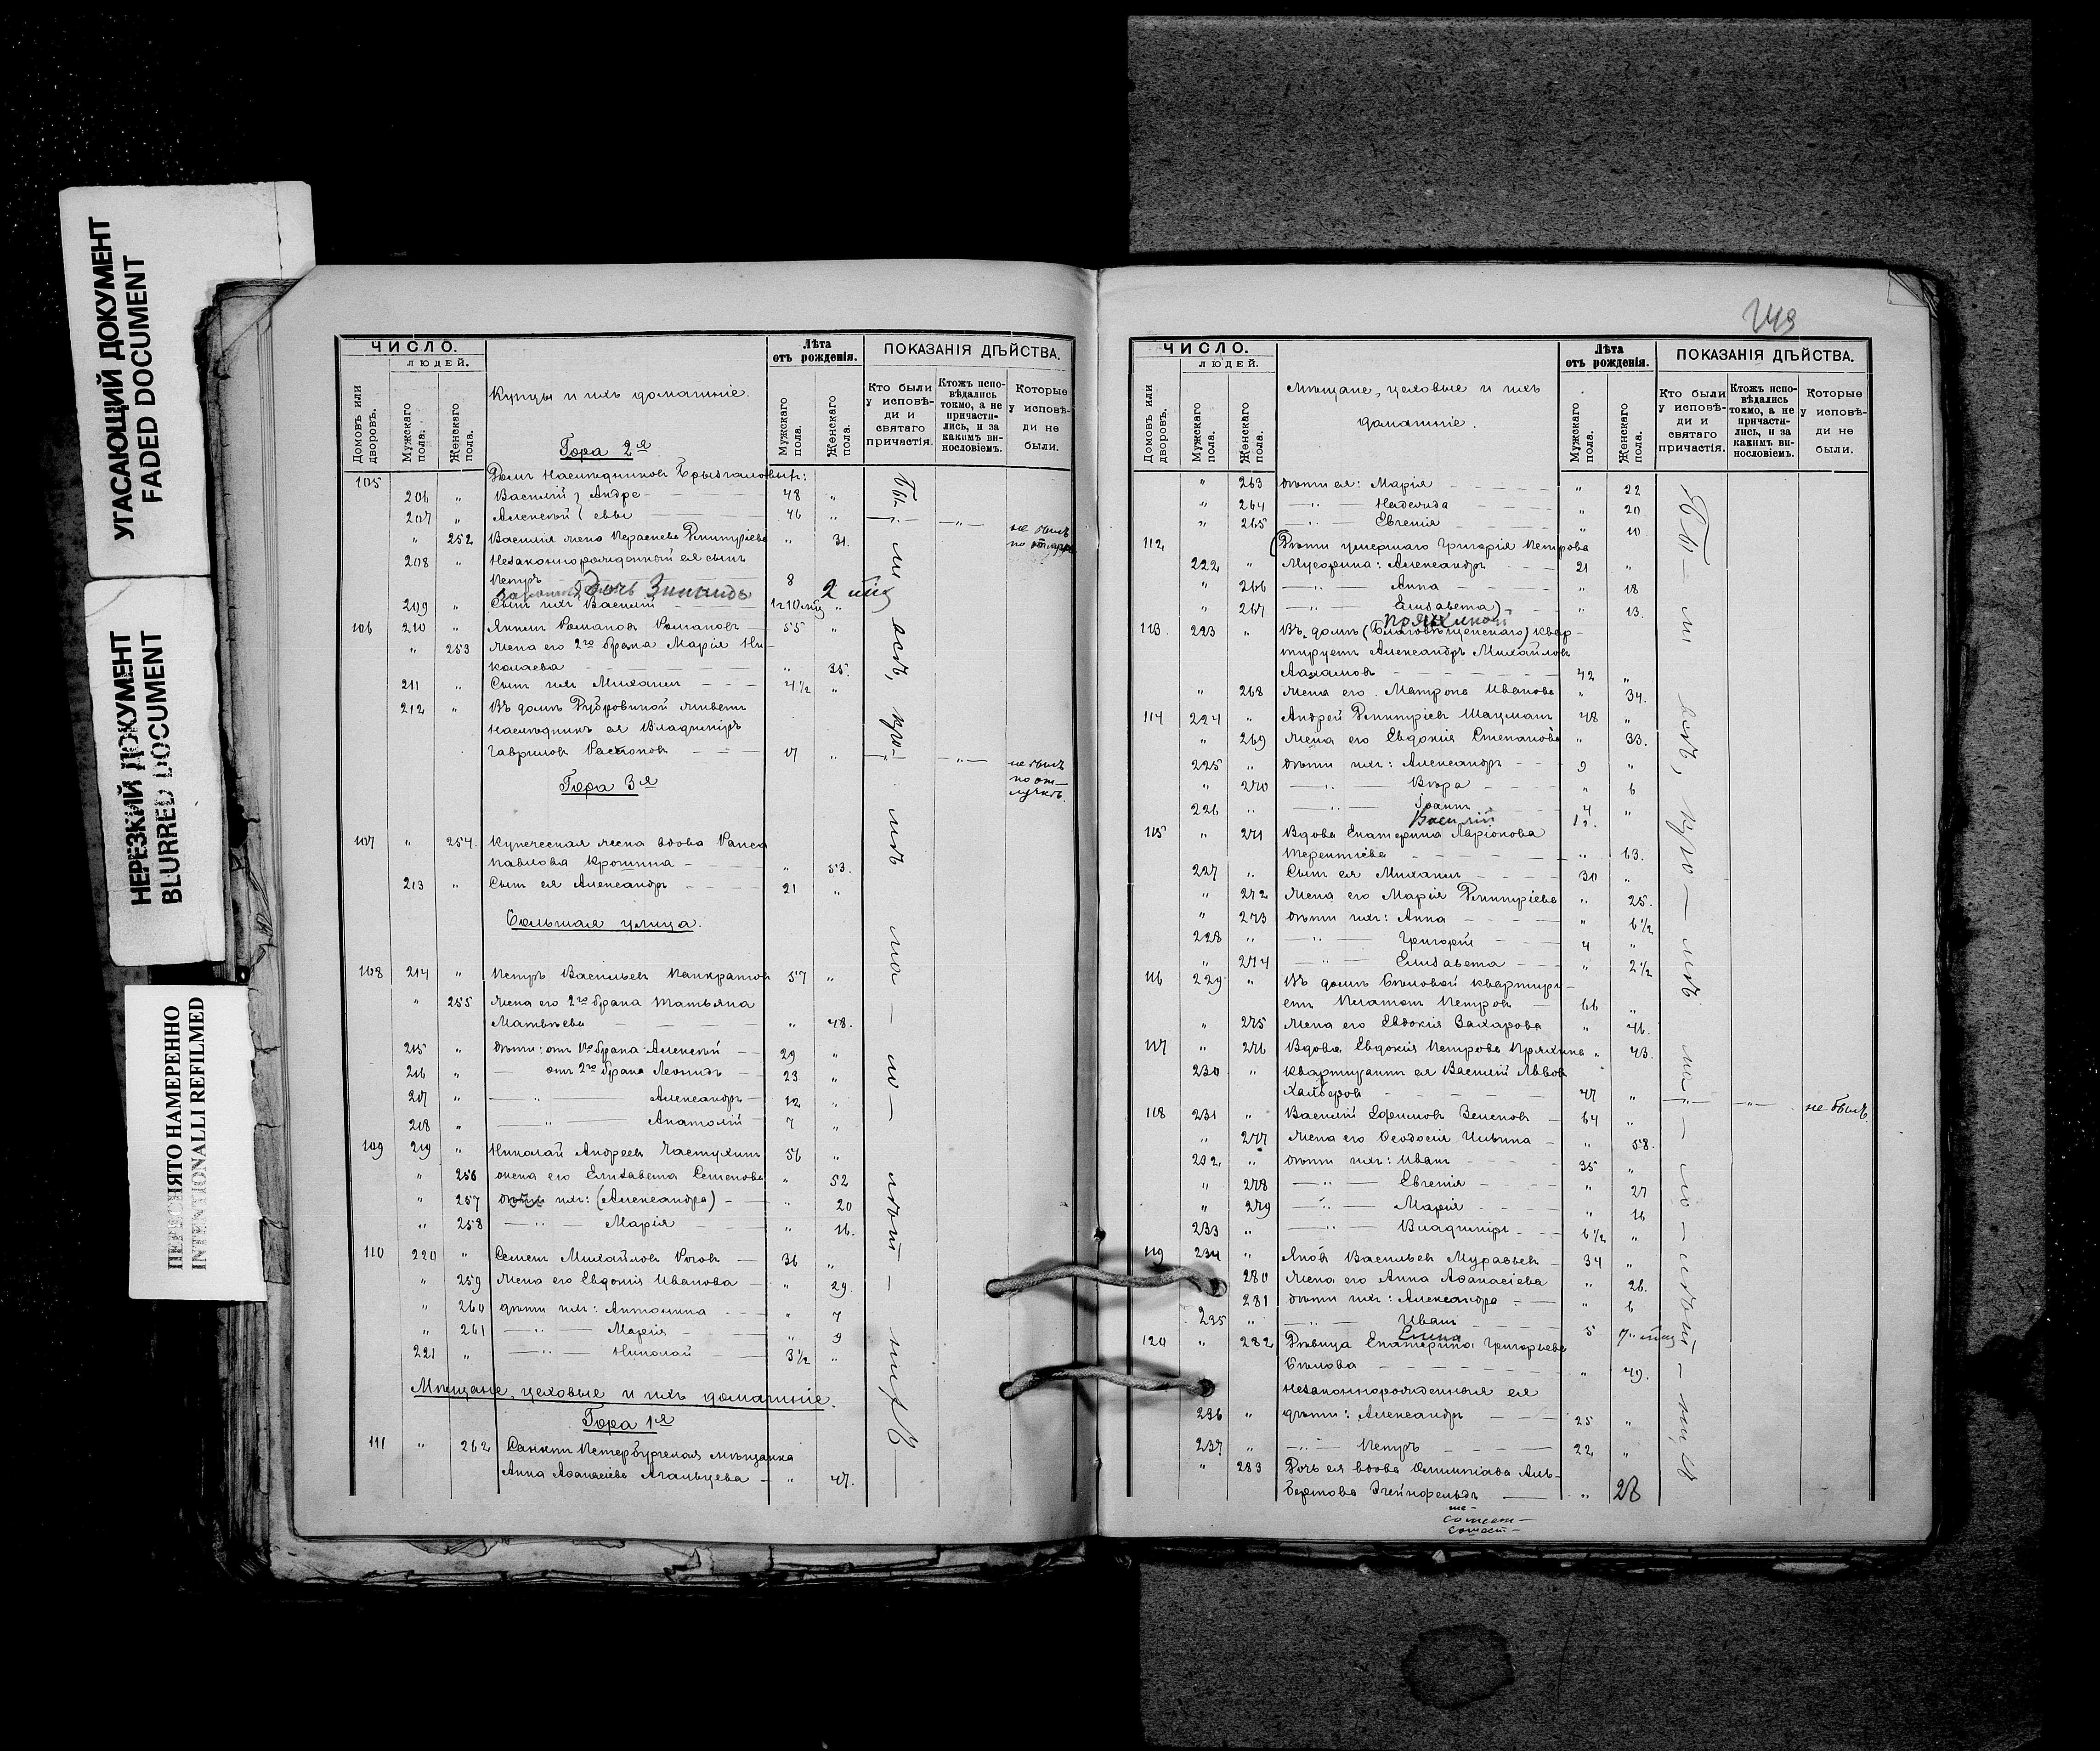 УГАСАЮЩИЙ ДОКУМЕНТ
FADED DOCUMENT
НЕРЕЗКИЙ ДОКУМЕНТ
BLURRED DOCUMENT
ПЕРЕСНЯТО НАМЕРЕННО
INTENTIONALLI REFILMED
ЧИСЛО.
ЛЮДЕЙ.
Домовъ или дворовъ.
Мужскаго пола.
Женскаго пола.
Купцы и ихъ домашніе.
Лѣта
отъ рожденія.
Мужскаго пола.
Женскаго пола.
ПОКАЗАНІЯ ДѢЙСТВА.
Кто были у исповѣди и святаго причастія.
Ктожъ исповѣдались токмо, а не причастились, и за какимъ винословіемъ.
Которые у исповѣди не были.
Гора 2я
105 Домъ Наслѣдниковъ Брызгаловыхъ:
206 " Василій } Андре 48 "
207 " Алексѣй } евы 46 " не былъ
" 252 Василія жена Дмитріева " 31.
208 " Незаконнорожденный ея сынъ
Петръ 8
Дочь Зинаида 2 мѣс
209 " Сынъ ихъ Василій 1 г 10 мѣс "
106 210 " Романовъ Романовъ 55 "
" 253 Жена его 2го брака Марія Ни-
колаева " 35.
211 " Сынъ ихъ Михаилъ 4½ "
212 " Въ домѣ Дубровиной живетъ
наслѣдникъ ея Владиміръ
Гавриловъ 17 " не былъ
по от-
лучкѣ.
Гора 3я
107 " 254. Купеческая жена вдова Раиса
Павлова " 53.
213 " Сынъ ея Александръ 21 "
Большая улица.
108 214 " Петръ Васильевъ Панкратовъ 57 "
" 255 Жена его 2го брака Татьяна
Матвѣева " 48.
215 " дѣти: отъ 1го брака Алексѣй 29 "
216 " отъ 2го брака Леонидъ 23 "
217 " — " — Александръ 12 "
218 " — " — Анатолій 7 "
109 219 " Николай Андреевъ Частухинъ 56 "
" 256 жена его Елизавета Семенова " 52
" 257 дѣти ихъ: (Александра) " 20
" 258 — " — Марія " 16.
110 220 " Семенъ Михайловъ Роговъ 36 "
" 259 Жена его Евдокія Иванова " 29.
" 260 дѣти ихъ: Антонина " 7
" 261 — " — Марія " 9
221 " — " — Николай 3½ "
Мѣщане, цеховые и ихъ домашніе.
Гора 1я
111 " 262 Санктпетербургская мѣщанка
Анна Афанасіева " 47.
249
ЧИСЛО.
ЛЮДЕЙ.
Домовъ или дворовъ.
Мужскаго пола.
Женскаго пола.
Мѣщане, цеховые и ихъ
домашніе.
Лѣта
отъ рожденія.
Мужскаго пола.
Женскаго пола.
ПОКАЗАНІЯ ДѢЙСТВА.
Кто были у исповѣди и святаго причастія.
Ктожъ исповѣдались токмо, а не причастились, и за какимъ винословіемъ.
Которые у исповѣди не были.
" 263 дѣти ея: Марія " 22
" 264 — " — Надежда " 20
" 265 — " — Евгенія " 10
112 (Дѣти умершаго Григорія Петрова
222 " Мусорина: Александръ 21 "
" 266 — " — Анна " 18
" 267 — " — Елизавета) " 13.
Пряхиной
113. 223 " Въ домѣ (Благовѣщенскаго) квар-
тируетъ Александръ Михайловъ
42 "
" 268 Жена его Матрона Иванова " 34.
114 224 " Андрей Дмитріевъ Шацманъ 48 "
" 269 Жена его Евдокія Степанова " 33.
225 " дѣти ихъ: Александръ 9 "
" 270 — " — Вѣра " 6
226 " — " — Іоаннъ 4 "
Василій 1 г.
115 " 271 Вдова Екатерина Ларіонова
Терентіева " 63.
227 " Сынъ ея Михаилъ 30 "
" 272 Жена его Марія Дмитріева " 25.
" 273 дѣти ихъ: Анна " 6½
228 " — " — Григорій 4 "
" 274 — " — Елизавета " 2½
116 229 " Въ домѣ Бѣловой квартиру-
етъ Платонъ Петровъ 66 "
" 275 Жена его Евдокія Захарова " 46.
117 " 276 Вдова Евдокія Петрова Пряхина " 43.
230 " квартирантъ ея Василій Львовъ
47 " не былъ
118 231 " Василій Ефимовъ Зеленовъ 64 "
" 277 Жена его Ѳеодосія Ильина " 58.
232 " дѣти ихъ: Иванъ 35 "
" 278 — " — Евгенія " 27
" 279 — " — Марія " 16
233 " — " — Владиміръ 6½ "
119 234 " Яковъ Васильевъ Муравьевъ 34 "
280 Жена его Анна Афанасіева " 26.
281 дѣти ихъ: Александра " 6
235 " — " — Иванъ 5
Елена 7 мѣс
120 " 282 Дѣвица Екатерина Григорьева
Бѣлова " 49.
Незаконнорожденныя ея
236 " дѣти: Александръ 25 "
237 " — " — Петръ 22 "
" 283 Дочь ея вдова Олимпіада Аль-
бертова " 28